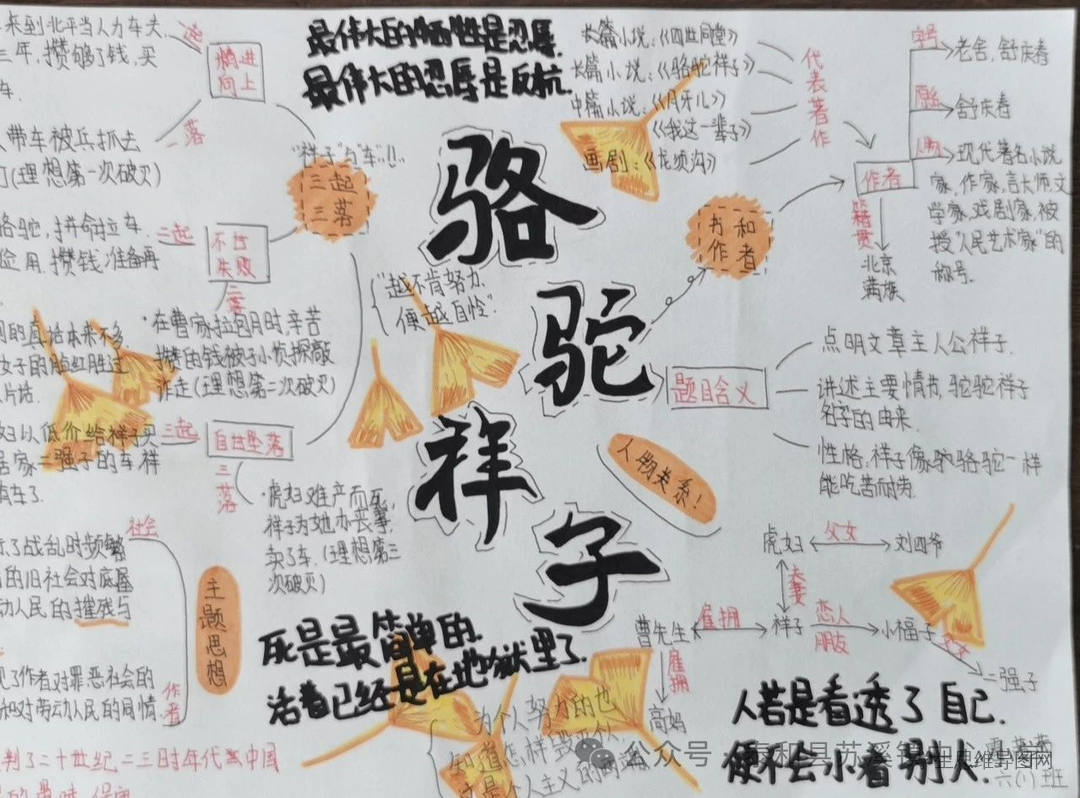 最伟大的牺牲是忍辱.
最伟大的忍辱是反抗.
骆
驼
祥
子
来到北平当人力车夫.
三年.攒够了钱,买
车.
一起
攒进
向上
一落
人带车被兵抓去
(理想第一次破灭)
"祥子"与"车"!!..
三起
三落
骆驼,拼命拉车.
俭用.攒钱,准备再
二起
不甘
失败
二落
·在曹家拉包月时辛苦
攒的钱被孙侦探敲
诈走(理想第二次破灭)
的真话本来不多.
女子的脸红胜过
片话.
虎妞以低价给祥子买
居家二强子的车祥
车了.
三起
自甘坠落
三落
·虎妞难产而死,
祥子为她办丧事,
卖了车.(理想第三
次破灭)
"越不肯努力
便越自怜."
长篇小说:《四世同堂》
长篇小说:《骆驼祥子》
中篇小说:《月牙儿》
《我这一辈子》
画剧:《龙须沟》
代表著作
书和
作者
作者
老舍,舒庆春
舒庆春
现代著名小说
家,作家,言大师文
学家,戏剧家,被
授"人民艺术家"的
称号.
籍贯
北京
满族
题目含义
点明文章主人公祥子.
讲述主要情节,驼驼祥子
名字的由来.
性格.祥子像驼骆驼一样
能吃苦而耐劳.
人物关系!
虎妞
父女
刘四爷
夫妻
曹先生
雇拥
祥子
恋人
朋友
小福子
父女
二强子
雇拥
高妈
社会
示了战乱时频繁
的旧社会对底层
动人民的摧残与
主题思想
现了作者对罪恶社会的
和对劳动人民的同情
作者
判了二十世纪二三时年代
中国
死是最简单的.
活着已经是在地狱里了.
为个人努力的也
知道怎样毁灭个人
这是个人主义的两端
人若是看透了自己.
便不会小看别人.
六(1)班
公众号·泰和县苏溪
思维导图网